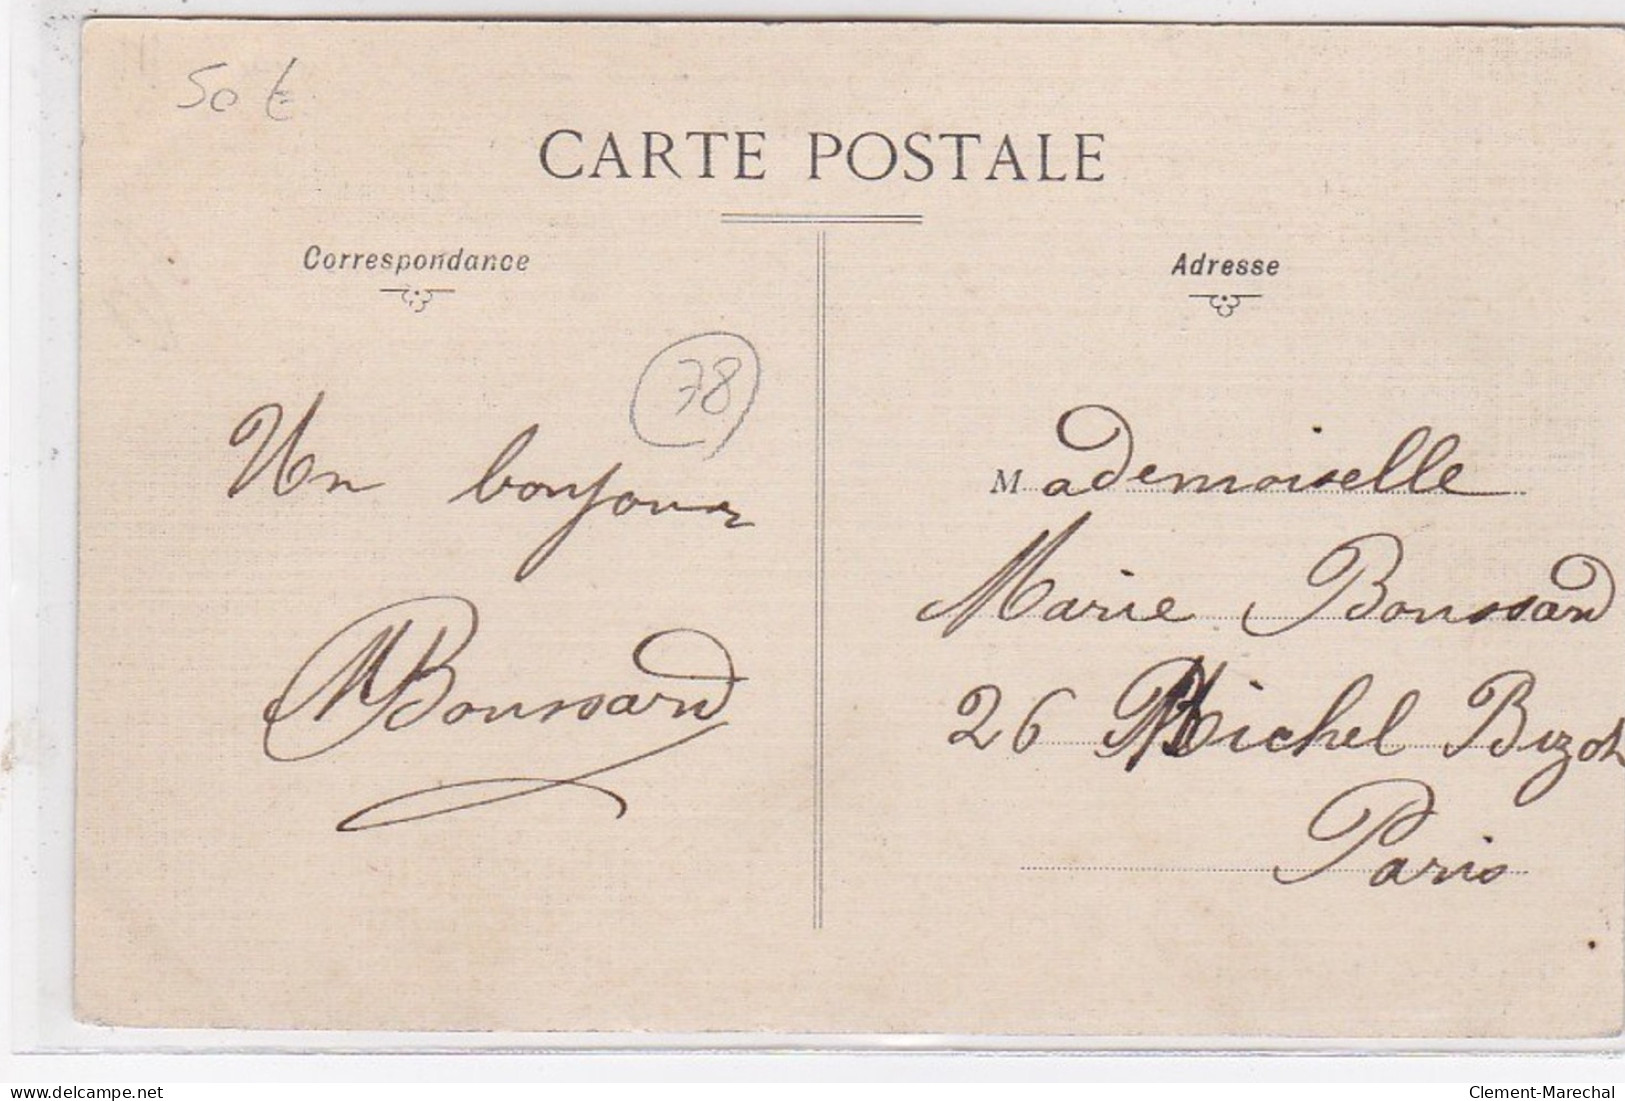 50 €
CARTE POSTALE
Correspondance
Adresse
78
Un bonjour
MBoussard
Mademoiselle
Marie Boussard
26 Michel Bizot
Paris
delcampe.net
Clement-Marechal